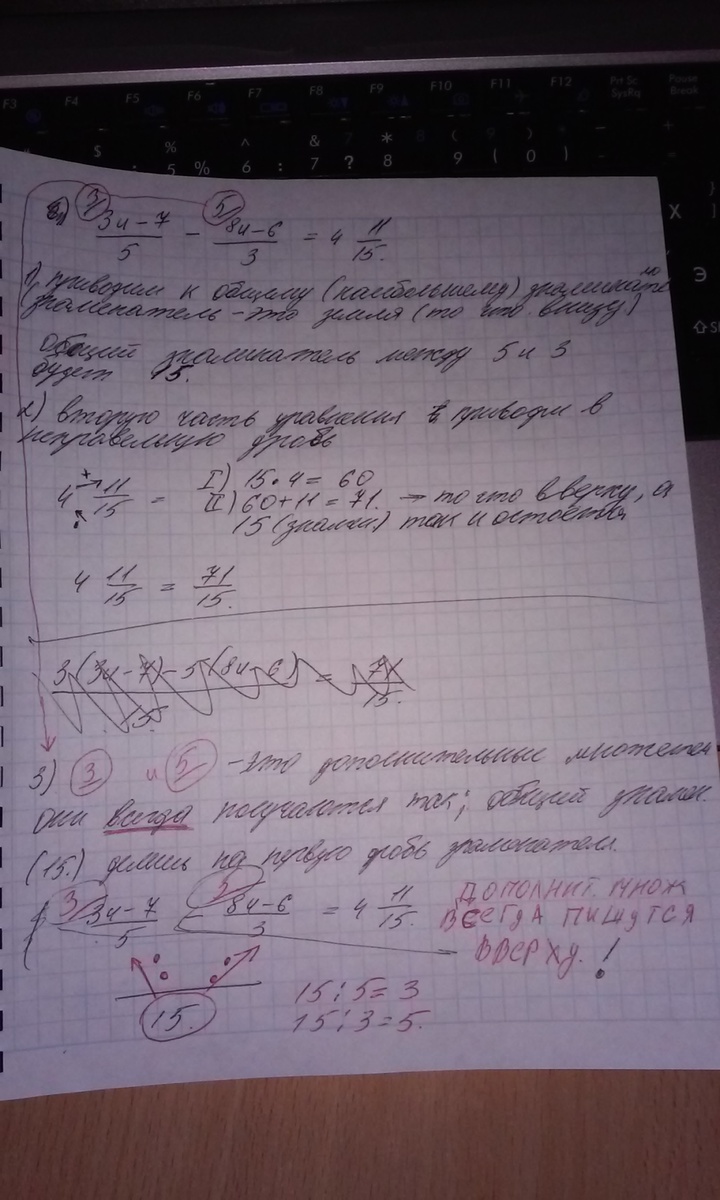 F3 F4 F5 F6 F7 F8 F9 F10 F11 F12 Prt Sc SysRq Pause Break
$ % 5 % ^ 6 : & 7 ? * 8 ( 9 ( ) 0 )
X
Э
3 5
3u-7/5 - 8u-6/3 = 4 11/15.
1) приводим к общему (наибольшему)
знаменатель - это земля (то что внизу)
общий знаминатель между 5 и 3
будет 15.
2) вторую часть уравнения приводим в
неправельную дробь
4 11/15 = I) 15·4= 60
II) 60+11=71. → то что вверху, а
15 (знамен) так и остается
4 11/15 = 71/15.
3(3u-7)-5(8u-6)/15 = 71/15.
3) 3 и 5 - это дополнительные
они всегда получаются так; общий знамен.
(15.) делишь на первую дробь знаменателя.
3 3u-7/5 8u-6/3 = 4 11/15. ДОПОЛНИТ. МНОЖ
ВСЕГДА ПИШУТСЯ
ВВЕРХУ. !
15. 15:5=3
15:3=5.